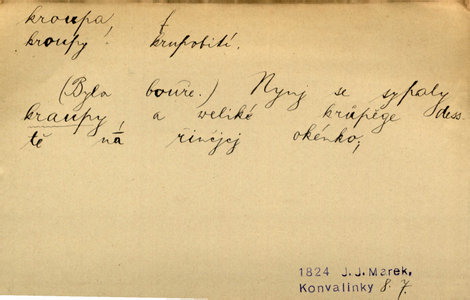 kroupa,
kroupy! krupobití.
(Byla bouře.) Nynj se sypaly
kraupy, a veliké krůpěge dess-
tě na řinčjcj okénko;
1824 J. J. Marek,
Konvalinky 8. 7.